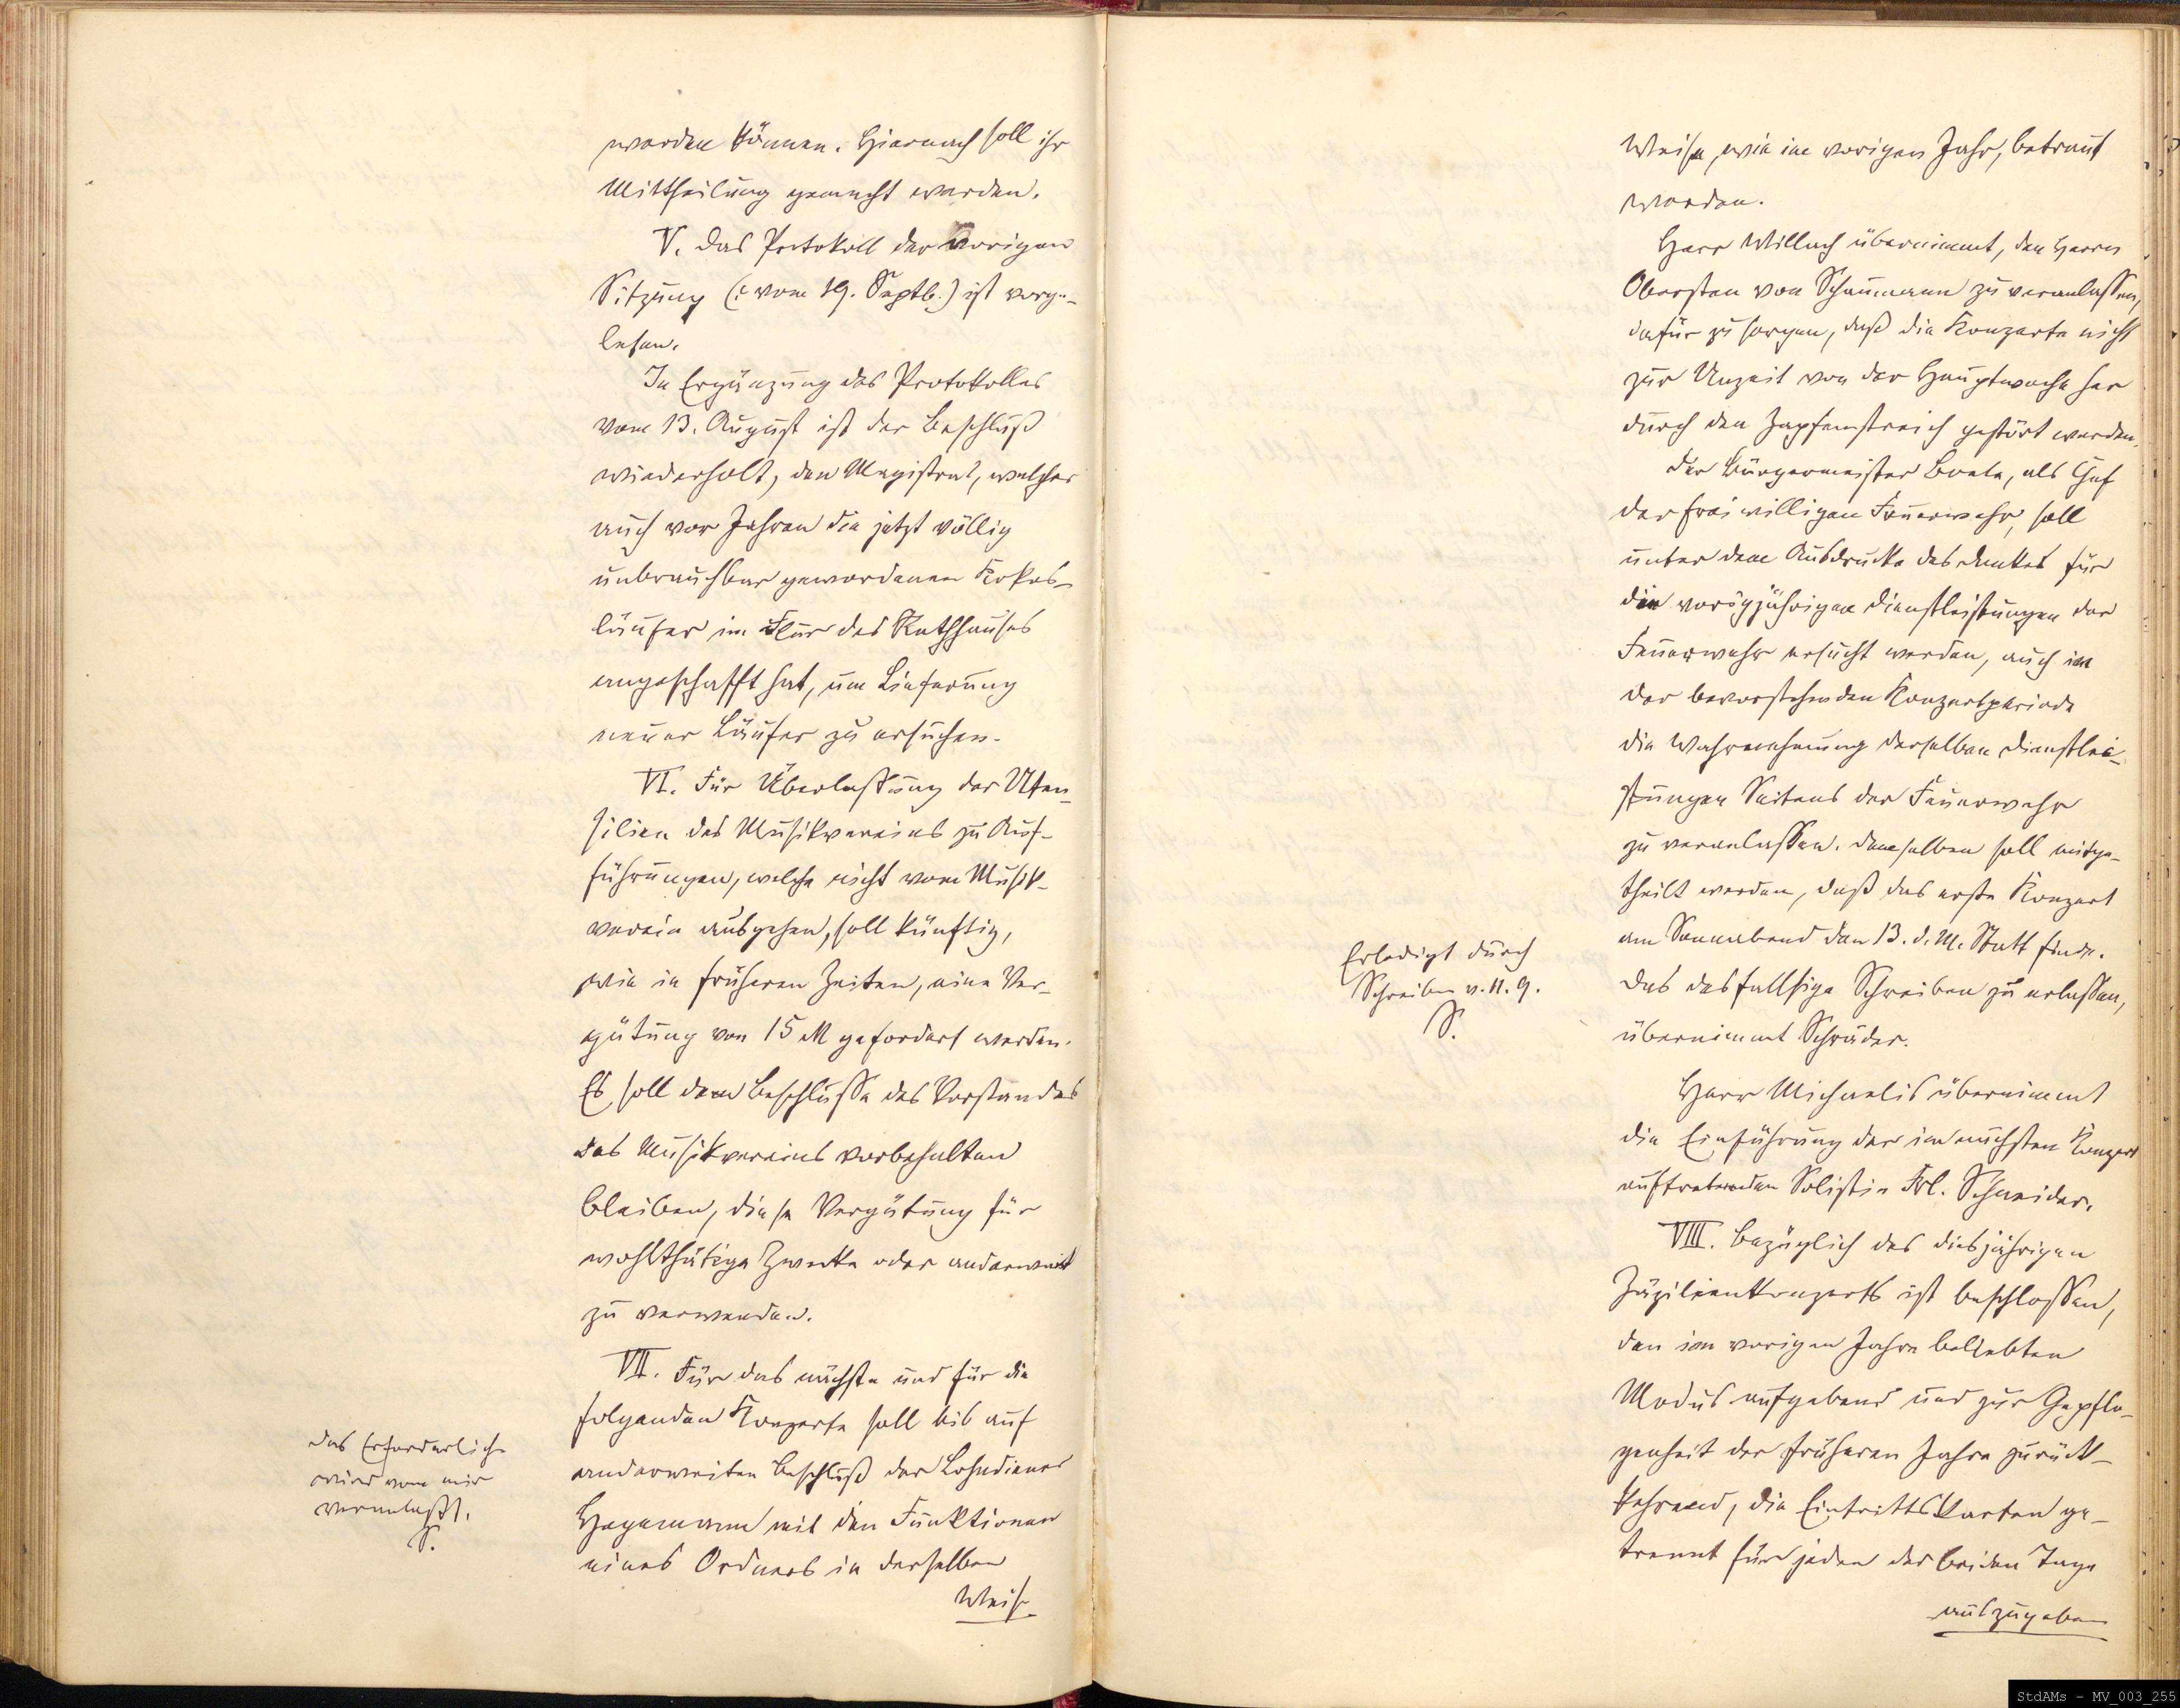 werden können. Hiernach soll ihr
Mittheilung gemacht werden.
V. Das Protokoll der vorigen
Sitzung (: vom 19. Septb.) ist vorge-
lesen.
In Ergänzung des Protokolles
vom 13. August ist der Beschluß
wiederholt, den Magistrat, welcher
auch vor Jahren die jetzt völlig
unbrauchbar gewordenen Kokos-
läufer im Flur des Rathhauses
angeschafft hat, um Lieferung
neuer Läufer zu ersuchen.
VI. Für Überlassung der Uten-
silien des Musikvereins zu Auf-
führungen, welche nicht vom Musik-
verein ausgehen, soll künftig,
wie in früheren Zeiten, eine Ver-
gütung von 15 M gefordert werden.
Es soll dem Beschlusse des Vorstandes
des Musikvereins vorbehalten
bleiben, diese Vergütung für
wohlthätige Zwecke oder anderweit
zu verwenden.
VII. Für das nächste und für die
folgenden Konzerte soll bis auf
anderweiten Beschluß der Lohndiener
Hagemann mit den Funktionen
eines Ordners in derselben
Weise
Das Erforderliche
wird von mir
veranlaßt.
S.
Weise, wie im vorigen Jahr, betraut
werden.
Herr Millach übernimmt, den Herrn
Obersten von Schaumann zu veranlassen,
dafür zu sorgen, daß die Konzerte nicht
zur Unzeit von der Hauptwache her
durch den Zapfenstreich gestört werden.
Der Bürgermeister Boele, als Chef
der freiwilligen Feuerwehr, soll
unter dem Ausdrucke des Dankes für
die vorigjährigen Dienstleistungen der
Feuerwehr ersucht werden, auch in
der bevorstehenden Konzertperiode
die Wahrnehmung derselben Dienstlei-
stungen Seitens der Feuerwehr
zu veranlassen. Demselben soll mitge-
theilt werden, daß das erste Konzert
am Sonnabend den 13. d. M. Statt finde.
Das desfallsige Schreiben zu erlassen,
übernimmt Schräder.
Erledigt durch
Schreiben v. 11. 9.
S.
Herr Michaelis übernimmt
die Einführung der im nächsten Konzert
auftretenden Solistin Frl. Schneider.
VIII. Bezüglich des diesjährigen
Zäzilienkonzerts ist beschlossen,
den im vorigen Jahre beliebten
Modus aufgebend und zur Gepflo-
genheit der früheren Jahre zurück-
kehrend, die Eintrittskarten ge-
trennt für jeden der beiden Tage
auszugeben
StdAMs - MV_003_255